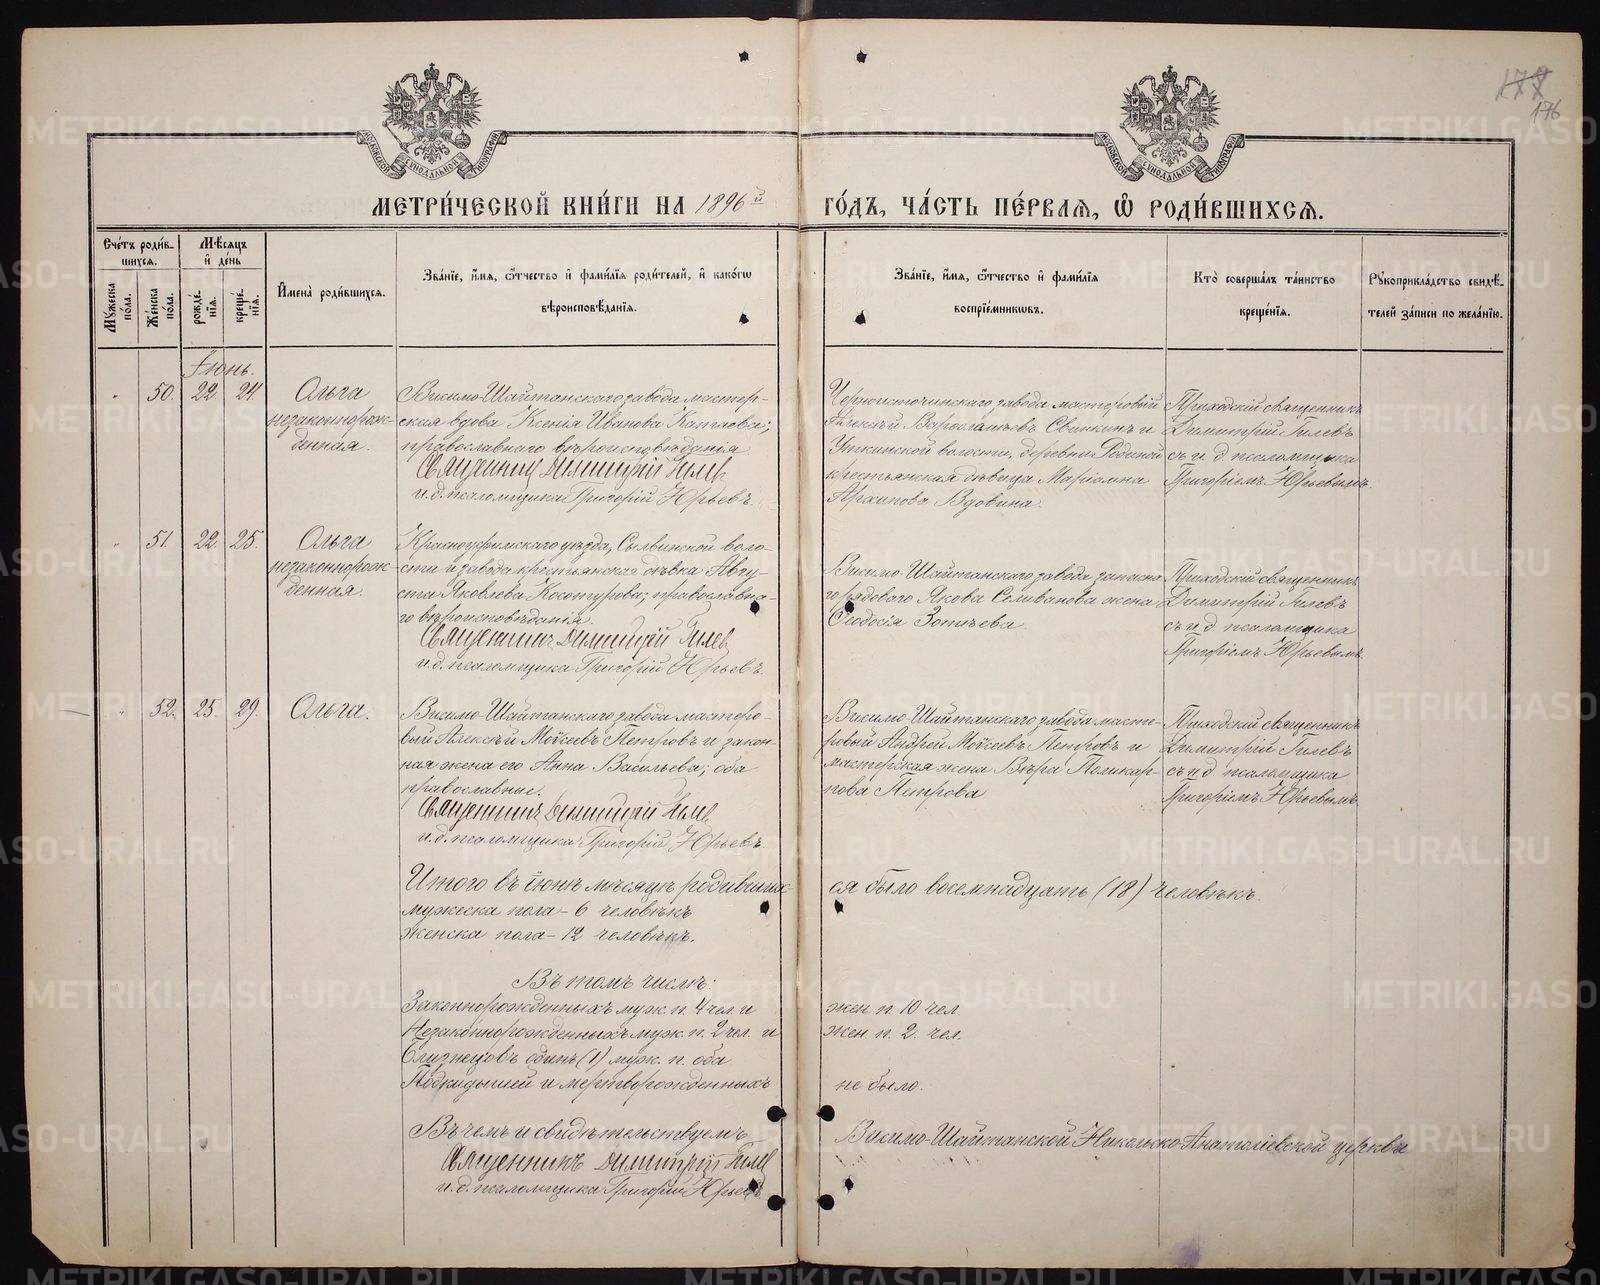 178
176
МОСКОВСКОЙ СУНОДАЛЬНОЙ ТИПОГРАФІИ
МОСКОВСКОЙ СУНОДАЛЬНОЙ ТИПОГРАФІИ
МЕТРИ́ЧЕСКОЙ КНИ́ГИ НА 1896й ГО́ДЪ, ЧА́СТЬ ПЕ́РВАѦ, Ѡ҆ РОДИ́ВШИХСѦ.
Сче́тъ роди́в-
шихсѧ.
Мꙋ́жеска по́ла.
Же́нска по́ла.
Мѣ́сѧцъ и҆ де́нь
рожде́-
нїѧ.
креще́-
нїѧ.
И҆мена̀ роди́вшихсѧ.
Зва́нїе, и҆́мѧ, ѻ҆́тчество и҆ фами́лїѧ роди́телей, и҆ како́гѡ
вѣроисповѣ́данїѧ.
Зва́нїе, и҆́мѧ, ѻ҆́тчество и҆ фами́лїѧ
воспрїе́мникѡвъ.
Кто̀ соверша́лъ та́инство
креще́нїѧ.
Рꙋкоприкла́дство свидѣ́-
телей за́писи по жела́нїю.
Іюнь.
" 50. 22. 24.
Ольга
незаконнорож-
денная.
Висимо-Шайтанскаго завода мастер-
ская вдова Ксенія Иванова Катаева;
православнаго вѣроисповѣданія.
Священникъ Димитрій Гилевъ
и.д. псаломщика Григорій Юрьевъ.
Черноисточинскаго завода мастеровый
Алексѣй Варѳоломѣевъ Свинкинъ и
Уткинской волости, деревни Родиной
крестьянская дѣвица Маріамна
Архипова Вдовина.
Приходскій священникъ
Димитрій Гилевъ
съ и. д. псаломщика
Григоріемъ Юрьевымъ.
" 51. 22. 25.
Ольга
незаконнорож-
денная.
Красноуфимскаго уѣзда, Сылвинской воло-
сти и завода крестьянская дѣвка Авгу-
ста Яковлева Косотурова; православна-
го вѣроисповѣданія.
Священникъ Димитрій Гилевъ
и.д. псаломщика Григорій Юрьевъ.
Висимо-Шайтанскаго завода запасна-
го рядоваго Якова Селиванова жена
Ѳеодосія Зотѣева
Приходскій священникъ
Димитрій Гилевъ
съ и д. псаломщика
Григоріемъ Юрьевымъ.
" 52. 25. 29.
Ольга.
Висимо-Шайтанскаго завода мастеро-
вый Алексѣй Моѵсеевъ Петровъ и закон-
ная жена его Анна Васильева; оба
православные.
Священникъ Димитрій Гилевъ
и.д. псаломщика Григорій Юрьевъ
Висимо-Шайтанскаго завода масте-
ровый Андрей Моѵсеевъ Петровъ и
мастерская жена Вѣра Поликар-
пова Петрова
Приходскій священникъ
Димитрій Гилевъ
съ и д. псаломщика
Григоріемъ Юрьевымъ.
Итого въ іюнѣ мѣсяцѣ родивших- ся было восемнадцать (18) человѣкъ.
мужеска пола - 6 человѣкъ
женска пола - 12 человѣкъ.
Въ томъ числѣ:
Законнорожденныхъ муж. п. 4 чел. и жен п. 10 чел.
Незаконнорожденныхъ муж. п. 2 чел. и жен. п. 2. чел.
Близнецовъ одинъ (1) муж. п. оба
Подкидышей и мертворожденныхъ не было.
Въ чемъ и свидѣтельствуемъ Висимо-Шайтанской Николаско-Анатоліевской церкви
Священникъ Димитрій Гилевъ
и. д. псаломщика Григорій Юрьевъ
METRIKI.GASO-URAL.RU